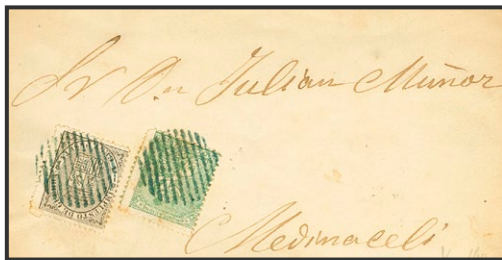 Sr Dn Julian Muñoz
Medinaceli